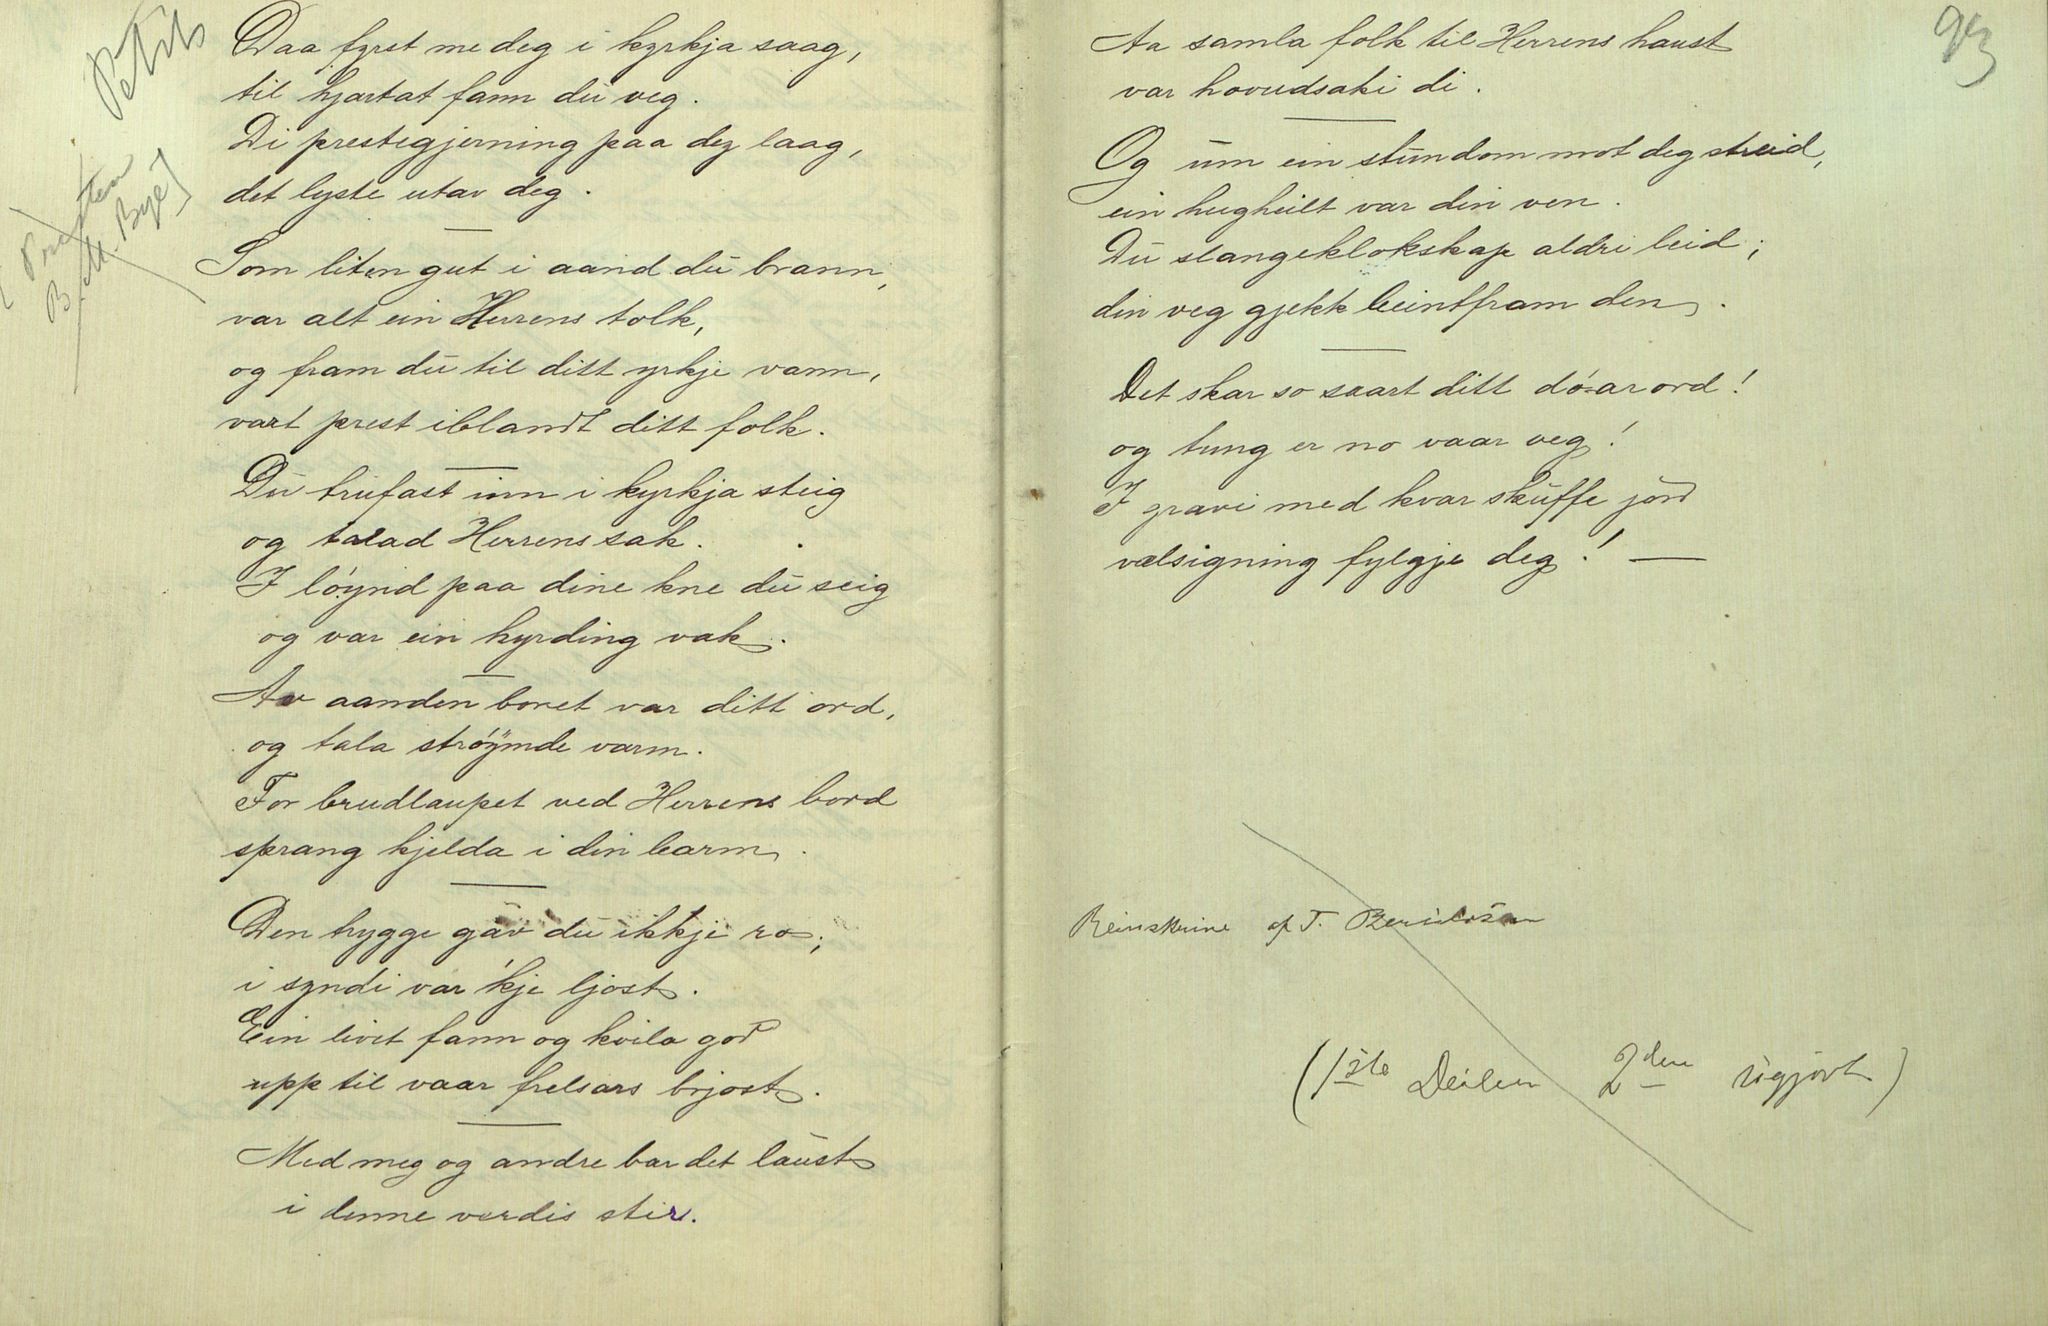 Daa fyrst me deg i kyrkja saag,
til hjartat fann du veg.
Di prestegjerning paa deg laag,
det lyste utav deg.
Som liten gut i aand du brann,
var alt ein Herrens tolk,
og fram du til ditt yrkje vann,
vart prest iblandt ditt folk.
Du trufast inn i kyrkja steig
og talad Herrens sak.
I løynd paa dine kne du seig
og var ein hyrding vak.
Av aanden boret var ditt ord,
og tala strøymde varm.
For brudlaupet ved Herrens bord
sprang kjelda i din barm.
Den trygge gav du ikkje ro;
i syndi var 'kje ljost.
Ein livet fann og kvila god
upp til vaar frelsars brjost.
Med meg og andre bar det laust
i denne verdis stir.
Presten
B. M. Bye]
Aa samla folk til Herrens haust
var hovudsaki di.
Og um ein stundom mot deg streid,
ein hugheilt var din ven.
Du slangeklokskap aldri leid;
din veg gjekk beintfram den.
Det skar so saart ditt dó-ar ord!
og tung er no vaar veg!
I gravi med kvar skuffe jord
vælsigning fylgje deg! —
Reinskrine af T.
(1ste Deilen 2den ugjort)